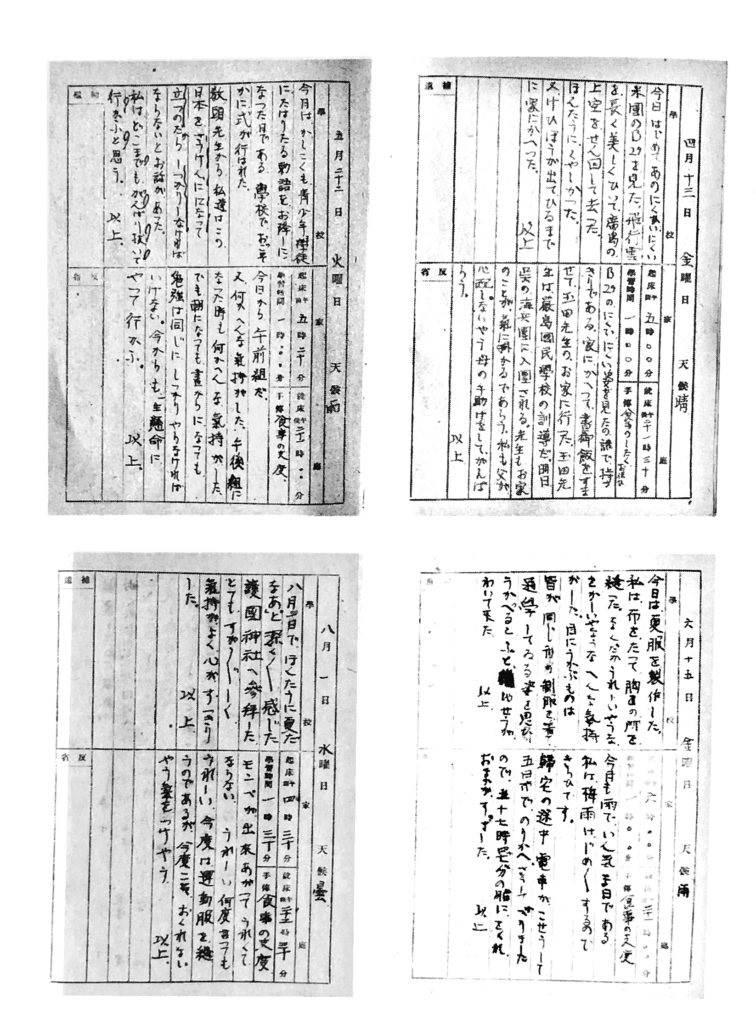 四月十三日 金曜日 天候 晴
學校
今日はじめてあのにくいにくい
米國のB29を見た。飛行雲
を長く美しくひいて廣島の
上空をせん回して去った。
ほんたうにくやしかった。
又けいほうが出てひるまで
に家にかへった。
以上
補遺
家庭
起床午前五時〇〇分 就床午後十一時三十分
學習時間 一時〇〇分 手傳 食事のしたく
B29のにくいにくい姿を見たの誰で持ち
きりである。家にかへって書御飯をすま
せて、玉田先生のお家に行った。玉田先
生は嚴島國民學校の訓導だ。明日
呉の海兵團に入團される。先生もお家
のことが氣に掛かるであらう。私も父が
心配しないやう母の手助けをして、がんば
らう。
以上
反省
五月二十二日 火曜日 天候 雨
學校
今日はかしこくも青少年學徒
にたはりたる勅語をお降しに
なった日である。學校でおごそ
かに式が行はれた。
教頭先生から私達はこの
日本をささうけんになって
立つのだからしっかりしなければ
ならないとお話があった。
私はどこまでもがんばり抜いて
行かふと思う。
以上。
家庭
起床午前五時二十分 就床午後二十一時〇〇分
學習時間 一時〇〇分 手傳 食事の支度。
今日から午前組だ。
又、何んへんな氣持がした。午後組に
なった時も何かへんな氣持がした。
でも朝になっても晝からになっても
勉強は同じにしっかりやらなければ
いけない。今からも一生懸命に
やって行かふ。
以上。
反省
六月十五日 金曜日 天候 雨
學校
今日は、更服を製作した。
私は、布をたって、胸直の所を
縫った。なんだかうれしいやうな
をかしいやうなへんな氣持
がした。目にうかぶものは
皆が同じ形の制服を着て
通學してゐる姿を思ひ
うかべるとふと
わいて来た
以上
家庭
手傳 食事の支度
今月も雨で、いん氣な日である
私は梅雨はじめじめするので
きらひです。
歸宅の途中、電車がこせうして
五日市でのりかへ
ので、
以上
八月一日 水曜日 天候 曇
學校
八月一日で、ほんたうに夏だ
なあ。と深く深く感じた
護國神社へ参拝した
とてもすがすがしく
氣持がよく心がすっきり
した。
以上。
補遺
家庭
起床午前四時三十分 就床午後二十二時三十分
學習時間 一時三十分 手傳 食事の支度
モンペが出來あがってうれしくて
ならない。うれしい何度言っても
うれしい。今度は運動服を縫
うのであるが、今度こそ、おくれない
やう氣をつけやう
以上。
反省